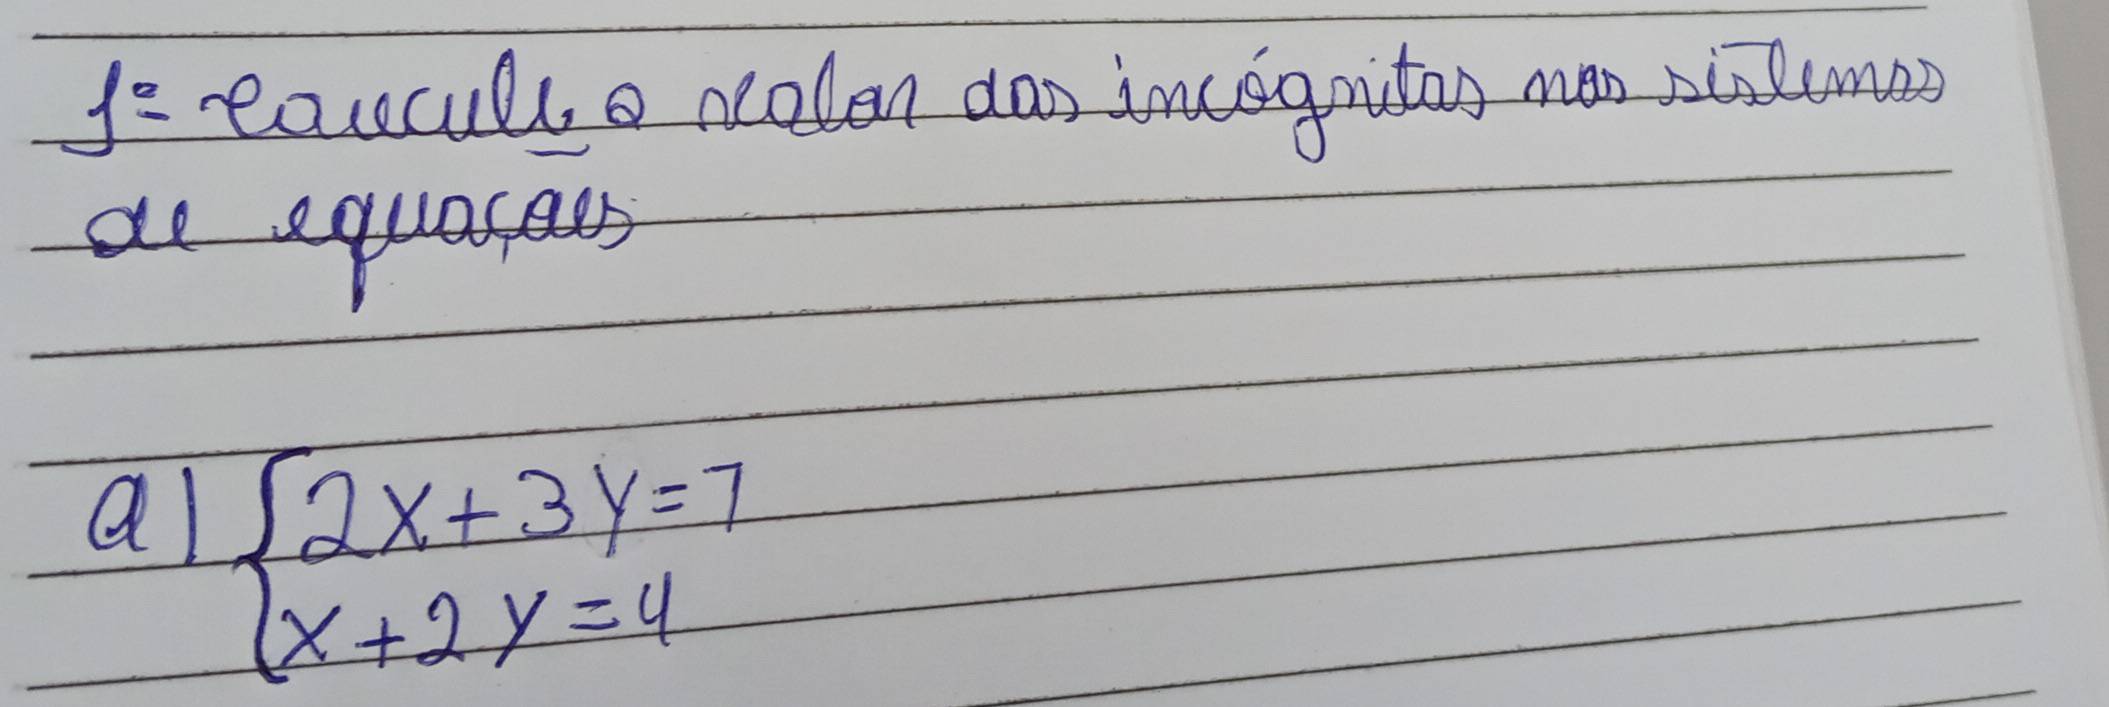 1= Caucule o valor das incógnitas nos sistemas
de equaçaes
a) { 2x + 3y = 7
x + 2y = 4